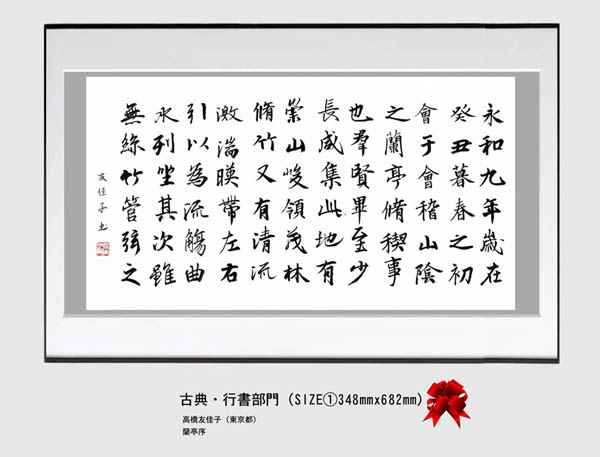 永和九年歳在
癸丑暮春之初
會于會稽山陰
之蘭亭脩稧事
也羣賢畢至少
長咸集此地有
崇山峻領茂林
脩竹又有清流
激湍暎帶左右
引以為流觴曲
水列坐其次雖
無絲竹管弦之
友佳子書
古典・行書部門（SIZE①348mmx682mm）
高橋友佳子（東京都）
蘭亭序